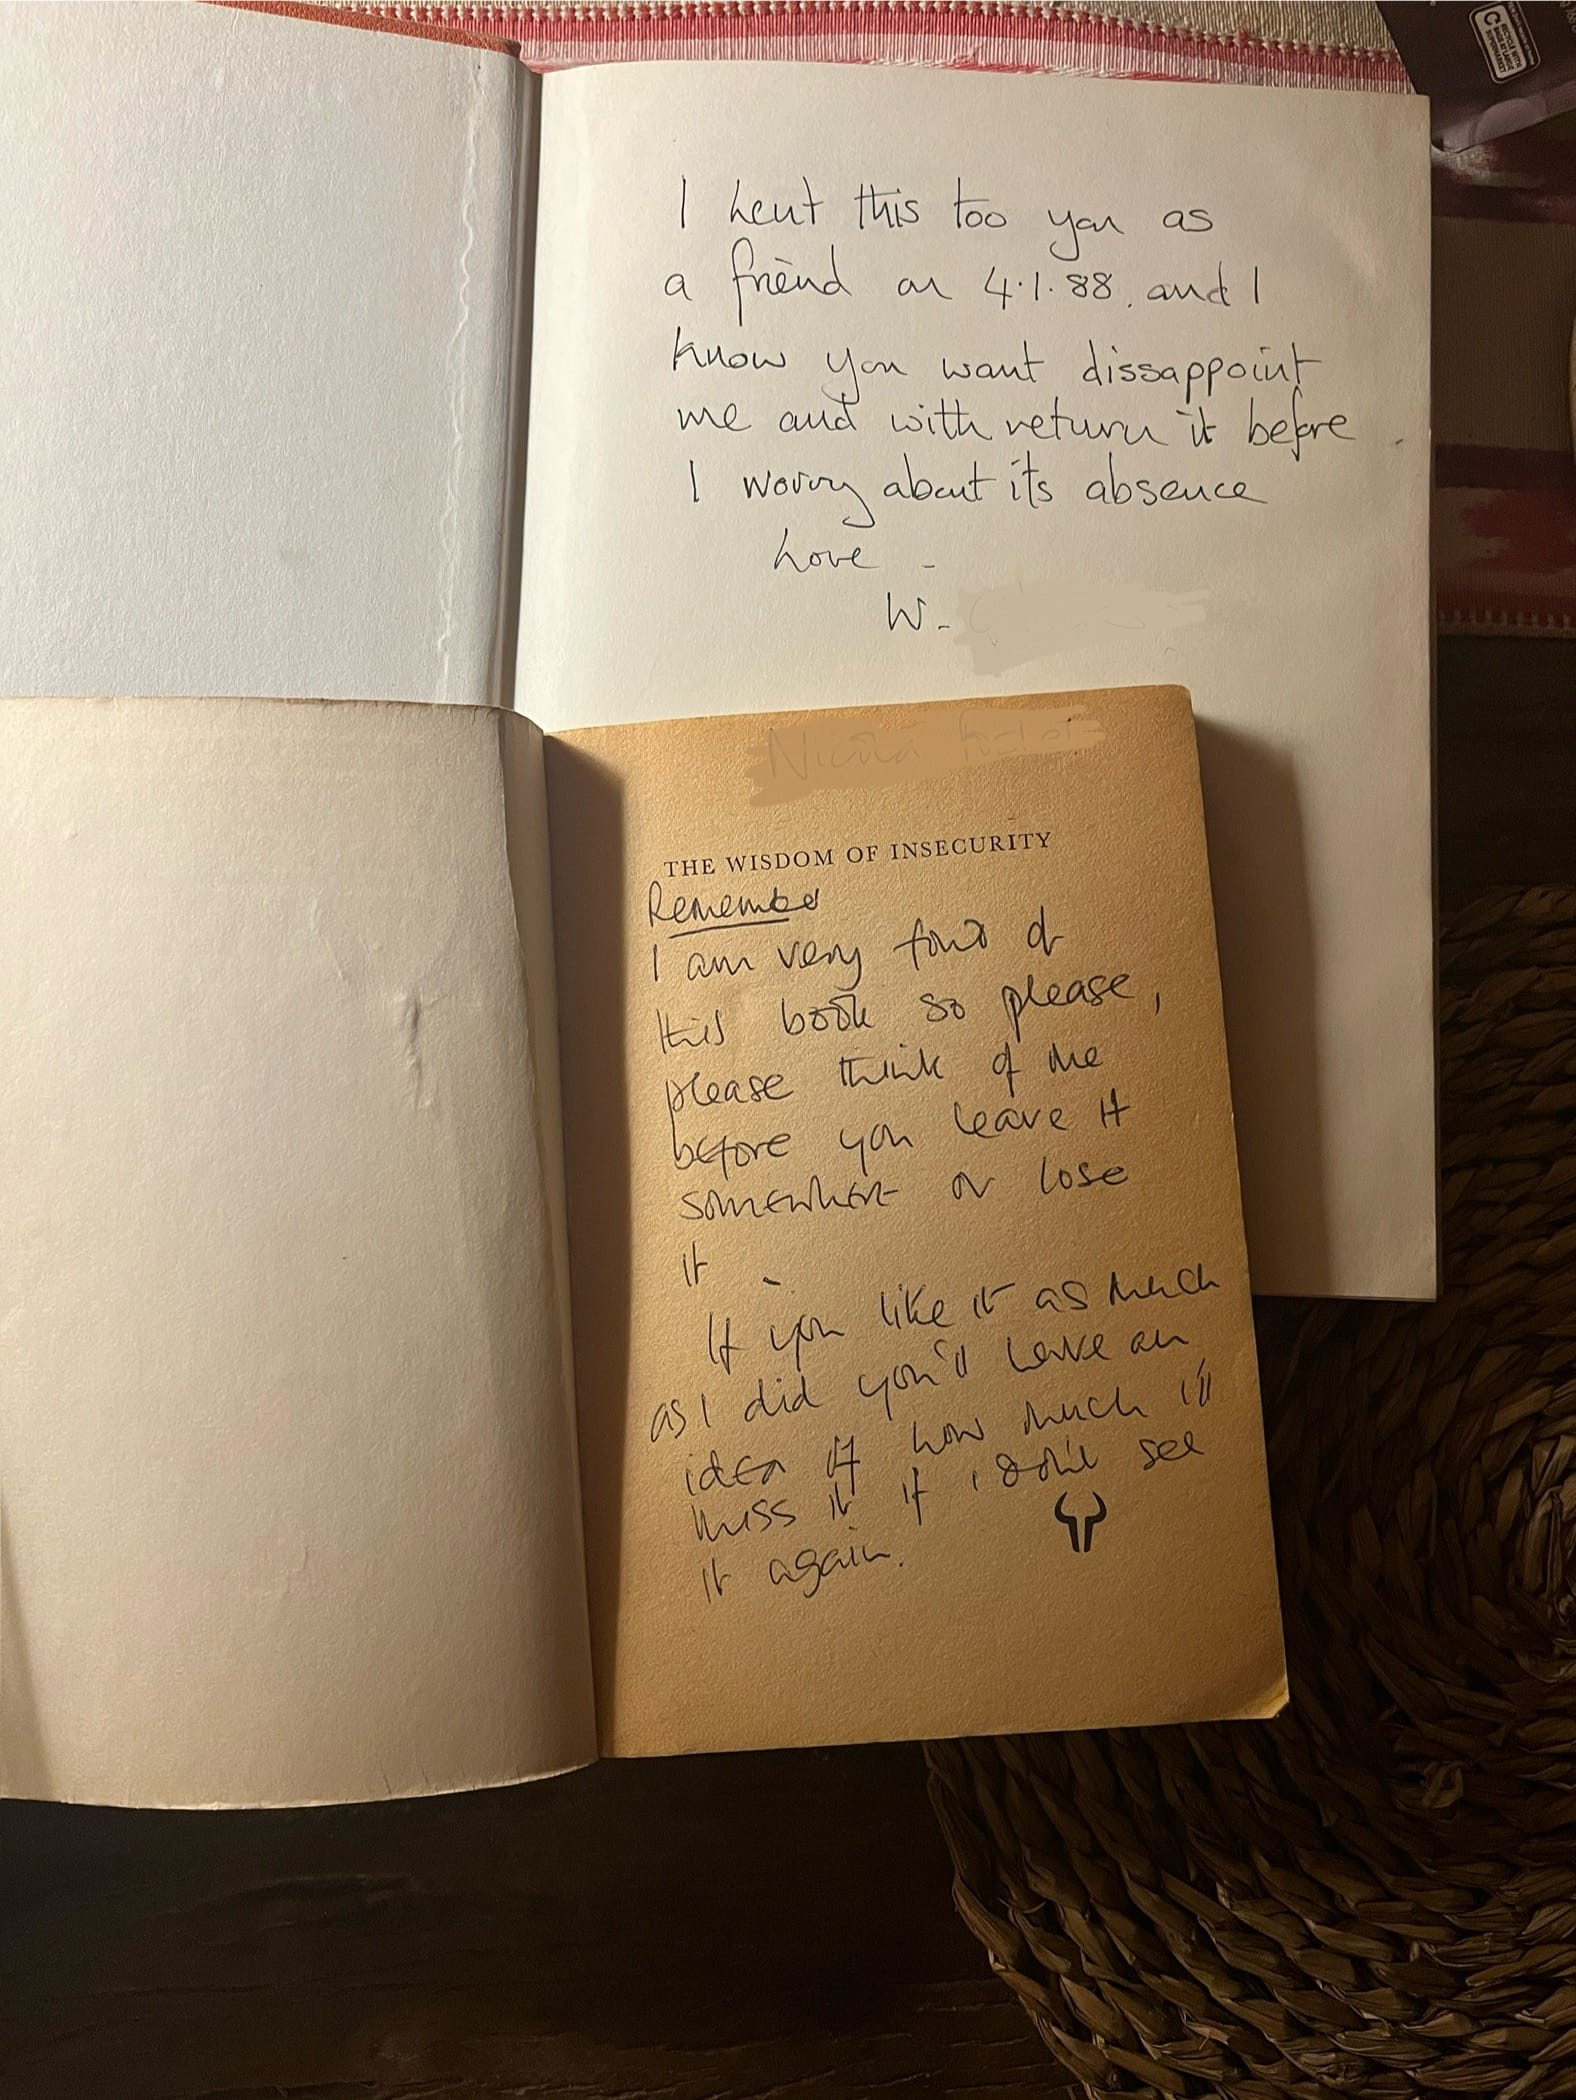 I lent this too you as
a friend on 4.1.88. and I
know you wont dissappoint
me and will return it before
I worry about its absence
Love -
W.
THE WISDOM OF INSECURITY
Remember
I am very fond of
this book so please,
please think of me
before you leave it
somewhere or lose
it
If you like it as much
as I did you'll have an
idea of how much i'll
miss it if I don't see
it again.
RECYCLE WITH
BAGS AT LARGE
SUPERMARKET